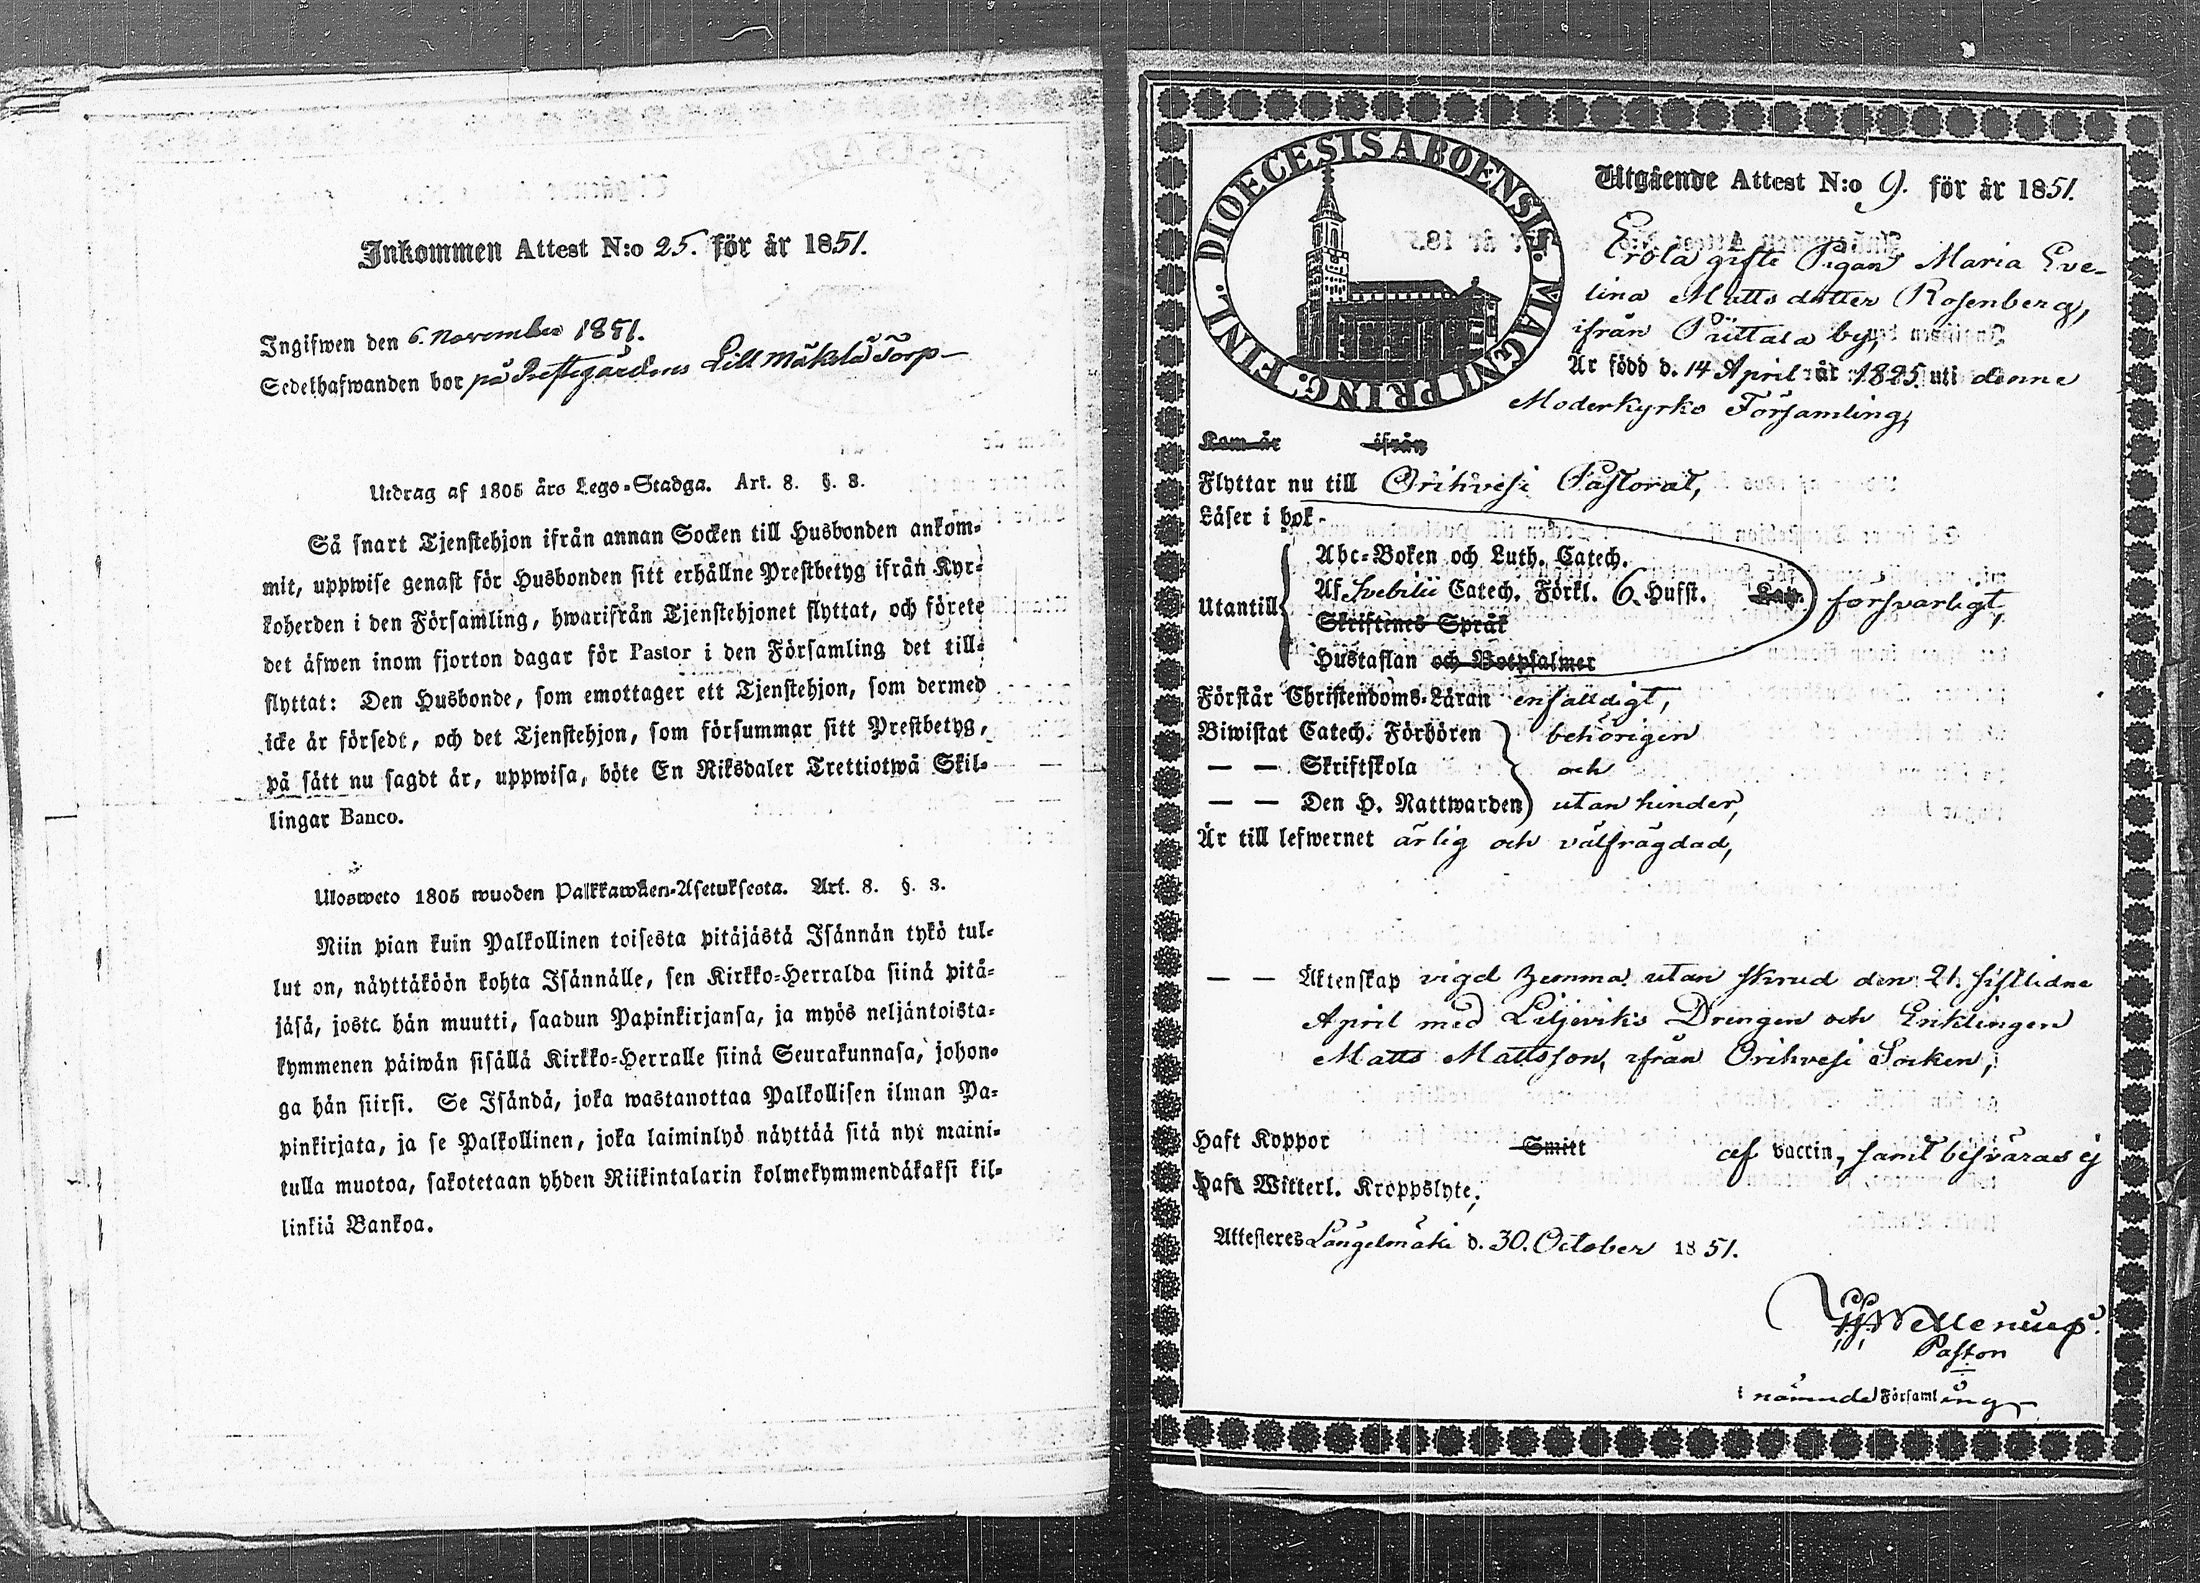 Inkommen Attest N:o 25. för år 1851.
Ingifwen den 6. November 1851.
Sedelhafwanden bor på Prestegårdens Lill Mäkelä Torp
Utdrag af 1805 års Lego-Stadga. Art. 8. §. 8.
Så snart Tjenstehjon ifrån annan Socken till Husbonden ankom-
mit, uppwise genast för Husbonden sitt erhållne Prestbetyg ifrån Kyr-
koherden i den Församling, hwarifrån Tjenstehjonet flyttat, och förete
det äfwen inom fjorton dagar för Pastor i den Församling det till-
flyttat: Den Husbonde, som emottager ett Tjenstehjon, som dermed
icke är försedt, och det Tjenstehjon, som försummar sitt Prestbetyg,
på sätt nu sagdt är, uppwisa, böte En Riksdaler Trettiotwå Skil-
lingar Banco.
Ulosweto 1805 wuoden Palkkawäen-Asetuksesta. Art. 8. §. 8.
Niin pian kuin Palkollinen toisesta pitäjästä Isännän tykö tul-
lut on, näyttäköön kohta Isännälle, sen Kirkko-Herralda siinä pitä-
jäsä, josta hän muutti, saadun Papinkirjansa, ja myös neljäntoista-
kymmenen päiwän sisällä Kirkko-Herralle siinä Seurakunnasa, johon-
ga hän siirsi. Se Isändä, joka wastanottaa Palkollisen ilman Pa-
pinkirjata, ja se Palkollinen, joka laiminlyö näyttää sitä nyt maini-
tulla muotoa, sakotetaan yhden Riikintalarin kolmekymmendäkaksi kil-
linkiä Bankoa.
DIOECESIS ABOENSIS. MAGNI PRINC. FINL.
Utgående Attest N:o 9. för år 1851.
Erola gifte Pigan Maria Eve-
lina Mattsdotter Rosenberg,
ifrån Puttala by,
Är född d. 14 April år 1825. uti denne
Moderkyrko Församling,
Kom år ifrån
Flyttar nu till Orihvesi Pastorat,
Läser i bok
Abc-Boken och Luth. Catech.
Utantill Af Svebilii Catech. Förkl. 6. Hufst. Kap. försvarligt,
Skriftenes Språk
Hustaflan och Botpsalmer
Förstår Christendoms-Läran enfaldigt,
Biwistat Catech. Förhören behörigen
— — Skriftskola och
— — Den H. Nattwarden utan hinder,
Är till lefwernet ärlig och välfrägdad,
— — Äktenskap vigd hemma utan skrud den 21. sistlidne
April med Liljeviks Drengen och Enklingen
Matts Mattsson, ifrån Orihvesi Socken,
Haft Koppor Smitt af vaccin, samt besväras ej
Haft Witterl. Kroppslyte,
Attesteras Längelmäki d. 30. October 1851.
Wellenius.
Pastor
i nämnde Församling